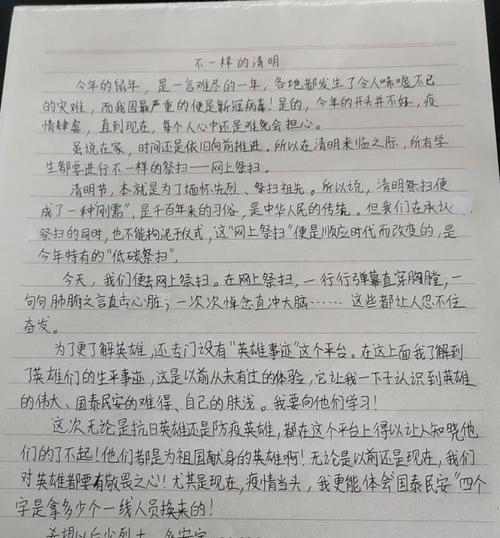 不一样的清明
今年的鼠年，是一言难尽的一年，各地都发生了令人唏嘘不已
的灾难，而我国最严重的便是新冠病毒！是的，今年的开头并不好，疫
情肆虐，直到现在，每个人心中还是难免会担心。
虽说在家，时间还是依旧向前推进。所以在清明来临之际，所有学
生都要进行不一样的祭扫——网上祭扫。
清明节，本就是为了缅怀先烈、祭扫祖先。所以说，清明祭扫便
成了一种“刚需”，是千百年来的习俗，是中华人民的传统。但我们在承认
祭扫的同时，也不能拘泥于仪式，这“网上祭扫”便是顺应时代而改变的，是
今年特有的“低碳祭扫”。
今天，我们便去网上祭扫。在网上祭扫，一行行弹幕直穿胸膛；一
句句肺腑之言直击心脏；一次次悼念直冲大脑……这些都让人忍不住
奋发。
为了更了解英雄，还专门设有“英雄事迹”这个平台。在这上面我了解到
了英雄们的生平事迹，这是以前从未有过的体验，它让我一下子认识到英雄
的伟大、国泰民安的难得、自己的肤浅。我要向他们学习！
这次无论是抗日英雄还是防疫英雄，都在这个平台上得以让人知晓他
们的了不起！他们都是为祖国献身的英雄啊！无论是以前还是现在，我们
对英雄都要有敬畏之心！尤其是现在，疫情当头，我更能体会国泰民安”四个
字是拿多少个一线人员换来的！